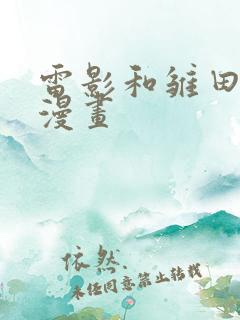 電影和雛田
漫畫
依然
未经同意禁止转载